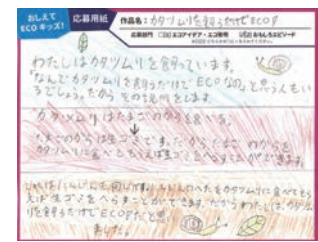 おしえて
ECOキッズ!
応募用紙
作品名:カタツムリを飼うだけでECO!?
応募部門 □(1) エコアイデア・エコ発明 ☑(2) おもしろエピソード
わたしはカタツムリを飼っています。
「なんでカタツムリを飼うだけでECOなの」と思う人もい
るでしょう。だから その説明をします
カタツムリはたまごのからを食べる。
↓
たまごのからは生ゴミです。だからたまごのからを
カタツムリに食べてもらえば生ゴミをへらすことができます。
じつは にんじんも同じです。にんじんのへたをカタツムリに食べてもら
えば生ゴミをへらすことができます。だからわたしは、カタツム
リを飼うだけでECO!?だと思い
ました。